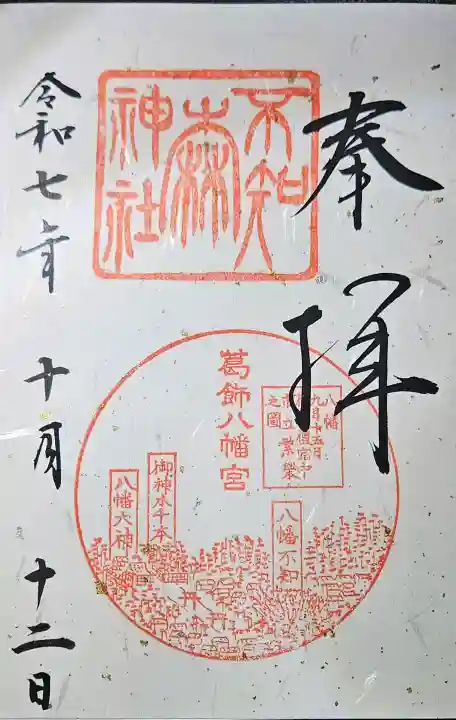 奉拝
不知
森
神社
葛飾八幡宮
八幡
九月十五日
市立繁栄
之図
八幡不知
御神水千本
八幡大神
令和七年 十月 十二日